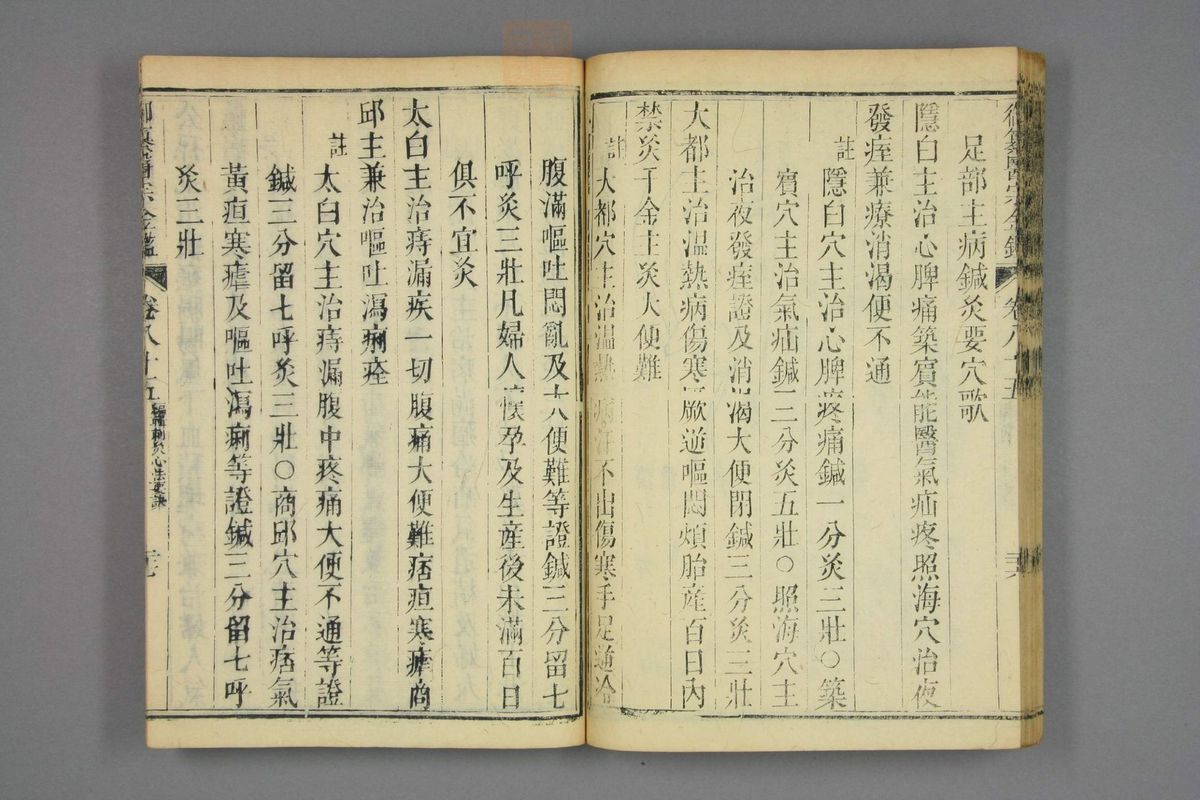 御纂醫宗金鑑 卷八十五 三六
足部主病鍼灸要穴歌
隱白主治心脾痛築賓能醫氣疝疼照海穴治夜
發痓兼療消渴便不通
註 隱白穴主治心脾疼痛鍼一分灸三壯○築
賓穴主治氣疝鍼三分灸五壯○照海穴主
治夜發痓證及消渴大便閉鍼三分灸三壯
大都主治温熱病傷寒厥逆嘔悶煩胎産百日內
禁灸千金主灸大便難
註 大都穴主治温熱病汗不出傷寒手足逆冷
腹滿嘔吐悶亂及大便難等證鍼三分留七
呼灸三壯凡婦人懷孕及生産後未滿百日
俱不宜灸
太白主治痔漏疾一切腹痛大便難痞疸寒瘧商
邱主兼治嘔吐瀉痢痊
註 太白穴主治痔漏腹中疼痛大便不通等證
鍼三分留七呼灸三壯○商邱穴主治痞氣
黃疸寒瘧及嘔吐瀉痢等證鍼三分留七呼
灸三壯
御纂醫宗金鑑 卷八十五 編輯刺灸心法要訣